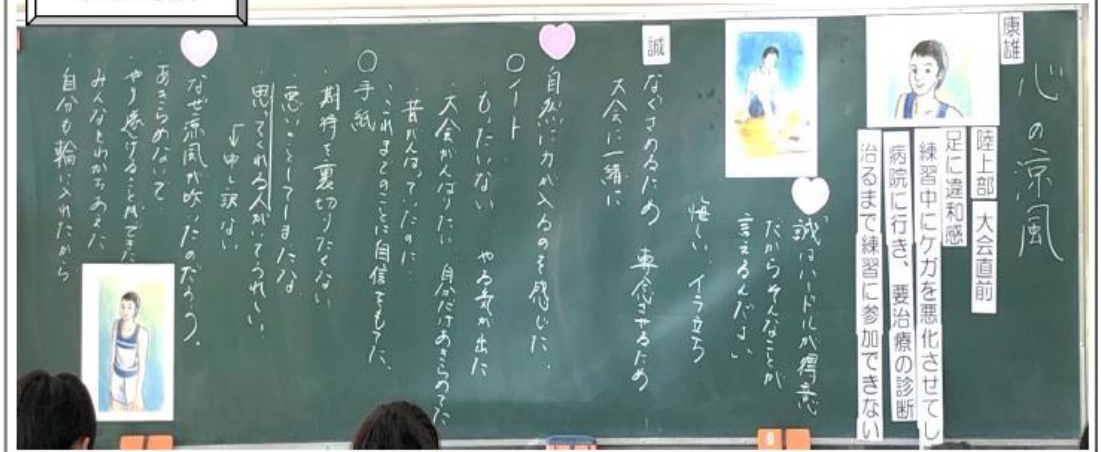 心の涼風
康雄
陸上部 大会直前
足に違和感
練習中にケガを悪化させてし
病院に行き、要治療の診断
治るまで練習に参加できない
誠はハードルが得意
だからそんなことが
言えるんだよ」
悔しい イラ立ち
誠
なぐさめるため 専念させるため
大会に一緒に
自然に力が入るのを感じた。
○ノート
・もったいない やる気が出た
・大会がんばりたい 自分だけあきらめてた
・昔がんばっていたのに
・これまでのことに自信をもてた。
○手紙
・期待を裏切りたくない
・悪いことしてしまったな
↓申し訳ない
・思ってくれる人がいてうれしい。
なぜ涼風が吹いたのだろう。
・あきらめないで
やり遂げることができた
・みんなとわかちあえた
・自分も輪に入れたから